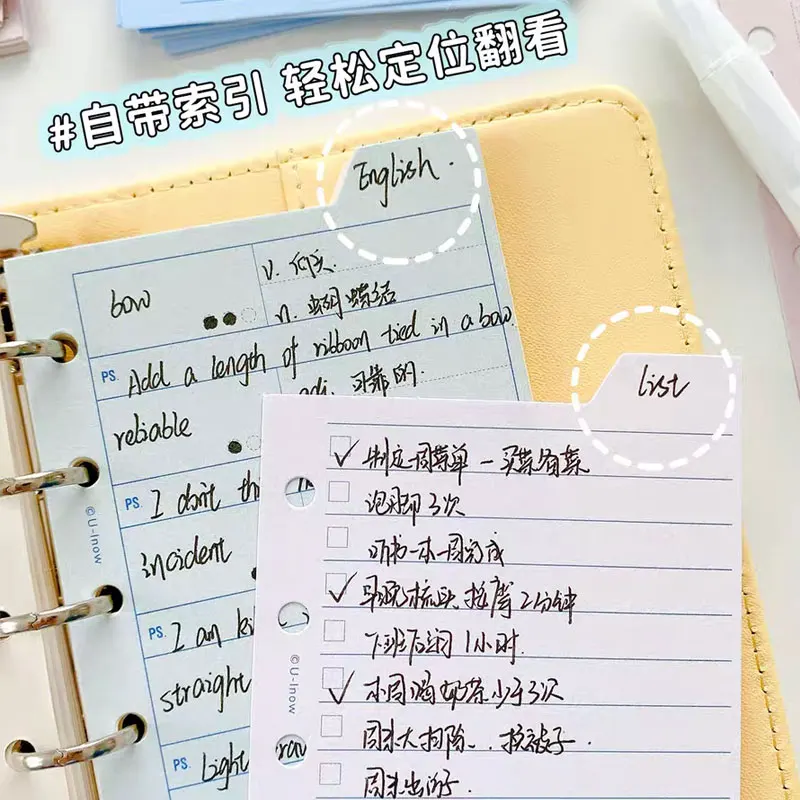 #自带索引 轻松定位翻看
English.
bow
v. 低头
n. 蝴蝶结
PS. Add a length of ribbon tied in a bow.
reliable
adj. 可靠的.
PS. I don't th
incident
PS. I am ki
straight
PS. Light
©U-Inow
list
制定一周菜单 - 买菜备菜
泡脚3次
听书一本一周完成
早晚梳头按摩2分钟
下班后阅1小时.
本周喝奶茶少于3次
周末大扫除..换被子.
周末出门.
©U-Inow